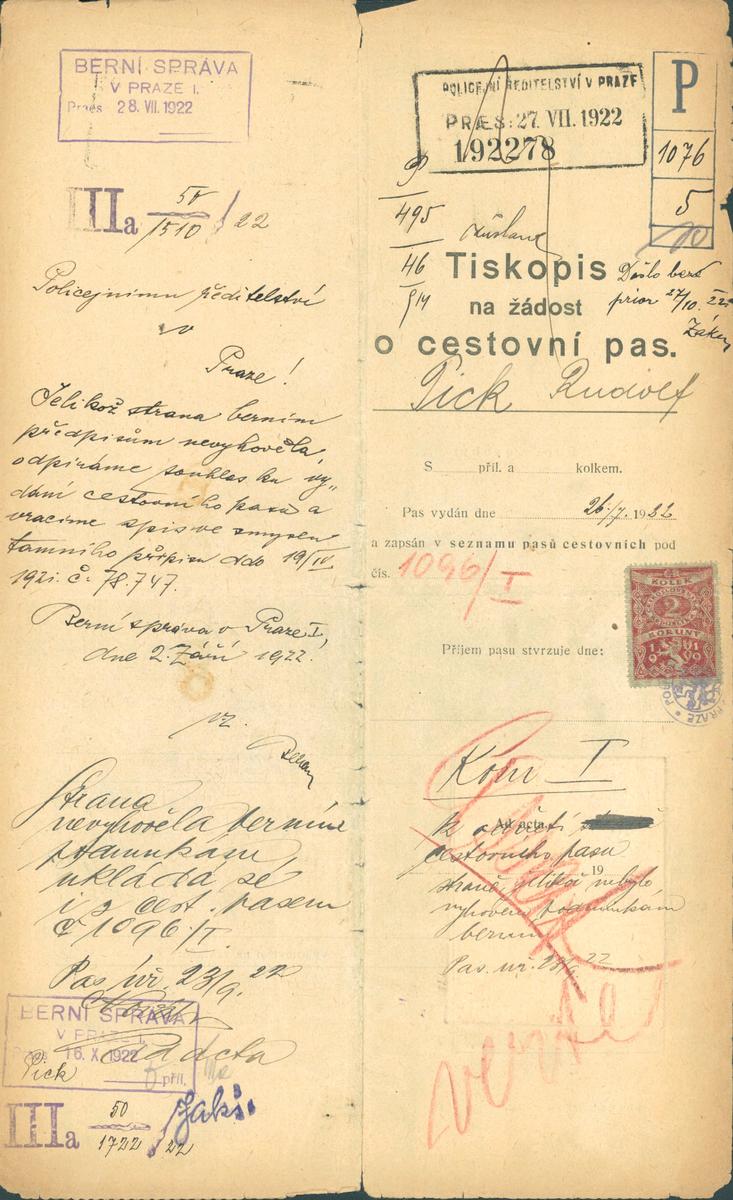 BERNÍ SPRÁVA
V PRAZE I.
Praes 28. VII. 1922
IIIa 50/1510 / 22
Policejnímu ředitelství
v
Praze!
Jelikož strana berním
předpisům nevyhověla,
odpíráme souhlas ku vy„
dání cestovního pasu a
vracíme spis ve smyslu
tamního přípisu ddo 19/IV.
1921. č. 78.747.
Berní správa v Praze I,
dne 2. Září 1922.
Strana
nevyhověla berním
podmínkám,
ukládá se
i s cest. pasem
č 1096/I.
Pas. úř. 23/9. 22
BERNÍ SPRÁVA
V PRAZE I.
Praes 16. X. 1922
Pick
příl.
Ad acta
IIIa 50/1722 / 22
POLICEJNÍ ŘEDITELSTVÍ V PRAZE
PRÆS: 27. VII. 1922
192278
P
1076
5
10
495
46
514
Tiskopis
na žádost
o cestovní pas.
Došlo beze
prior 27/10. 22
Pick Rudolf
S příl. a kolkem.
Pas vydán dne 26./7. 1922
a zapsán v seznamu pasů cestovních pod
čís. 1096/I
KOLEK
2
KORUNY
1919
Příjem pasu stvrzuje dne:
Kom I
Ad acta
k odnětí
cestovního pasu
19
straně, jelikož nebylo
vyhověno podmínkám
berním
Pas. úř. 23/9. 22
verte